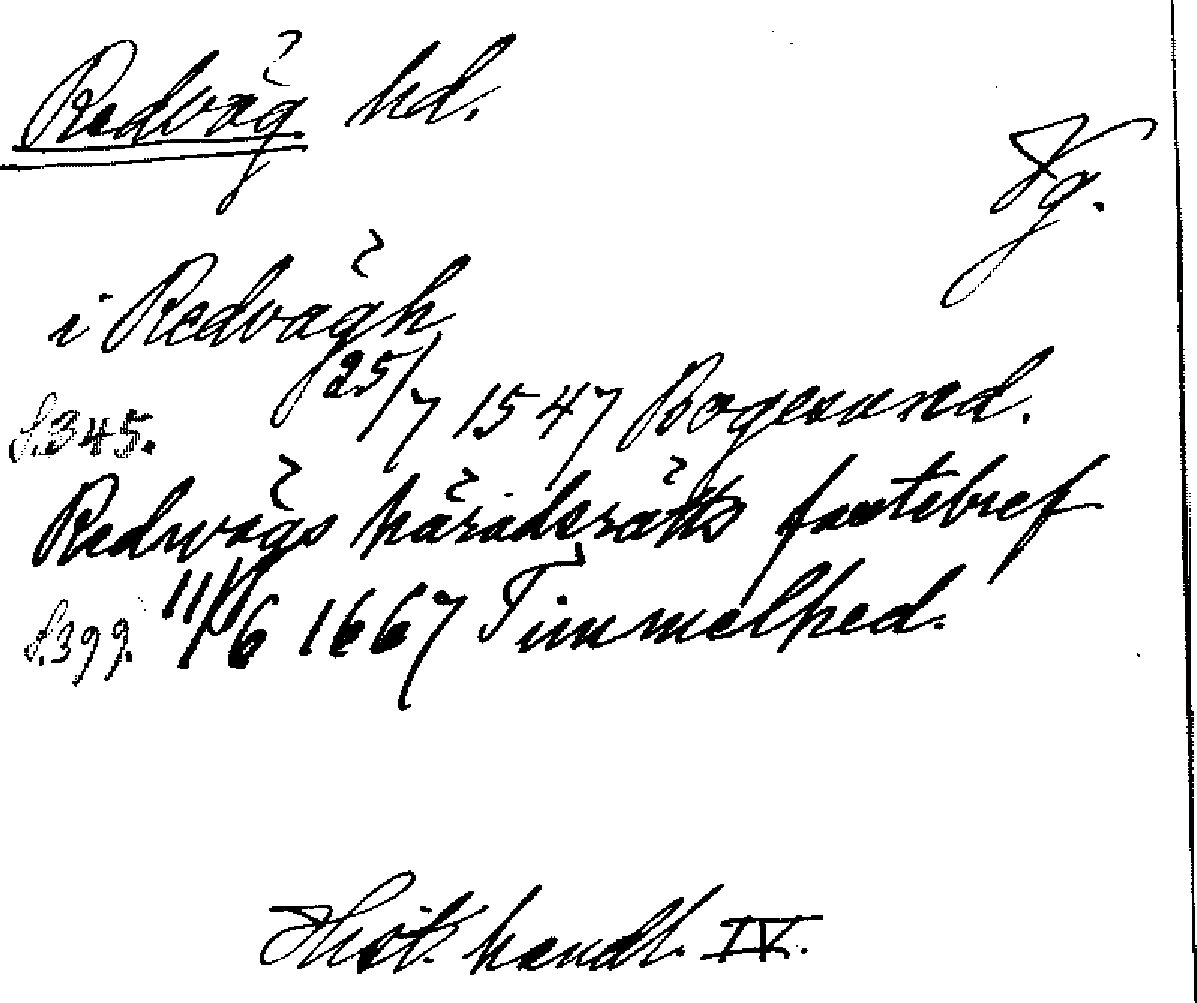 Redväg hd.
Vg.
i Redvägh
s. 345. 25/7 1547 Bogesund.
Redwägs häradsrätts fastebref
s. 399. 11/6 1667 Timmelhed.
Hist. handl. IV.